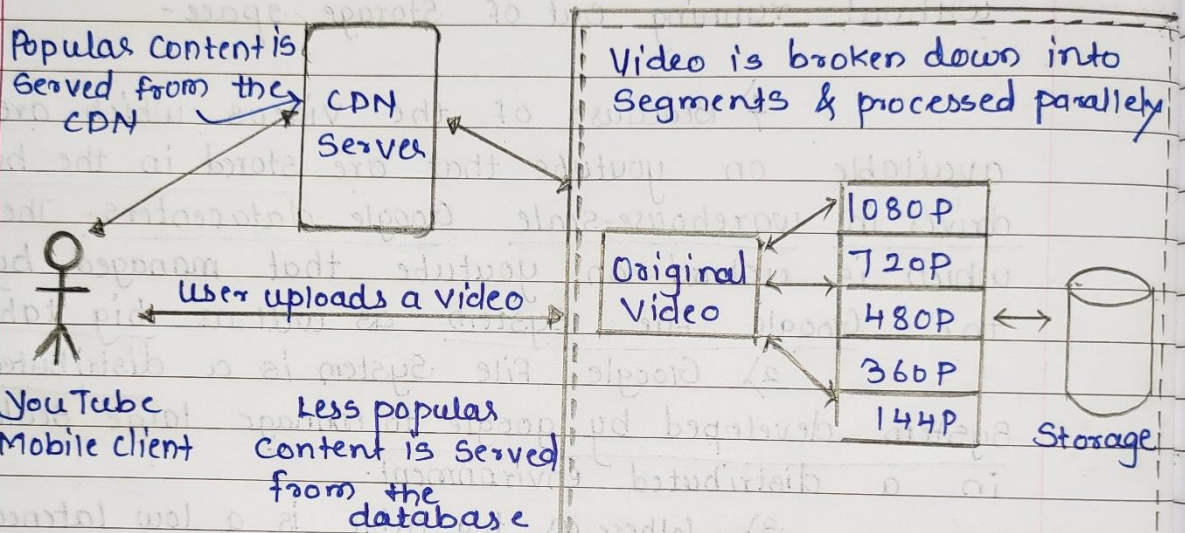 Popular Content is
Served from the
CDN
CDN
Server
Video is broken down into
Segments & processed parallely
Original
Video
1080P
720P
480P
360P
144P
Storage
User uploads a video
YouTube
Mobile Client
Less popular
Content is Served
from the
database